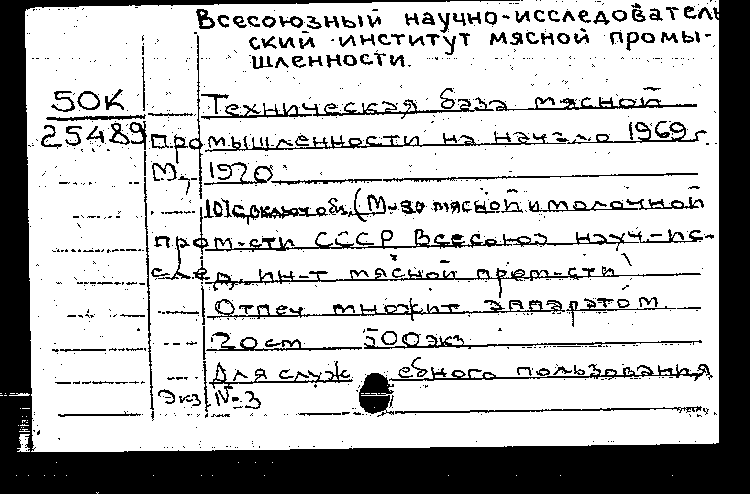 Всесоюзный научно-исследователь
ский институт мясной промы-
шленности.
50К
25489
Техническая база мясной
промышленности на начало 1969 г.
М., 1970
101с. включ обл. (М-во мясной и молочной
пром-сти СССР Всесоюз науч-ис-
след. ин-т мясной пром-сти)
Отпеч множит. аппаратом.
20 см 500 экз.
Для служебного пользования
Экз №3